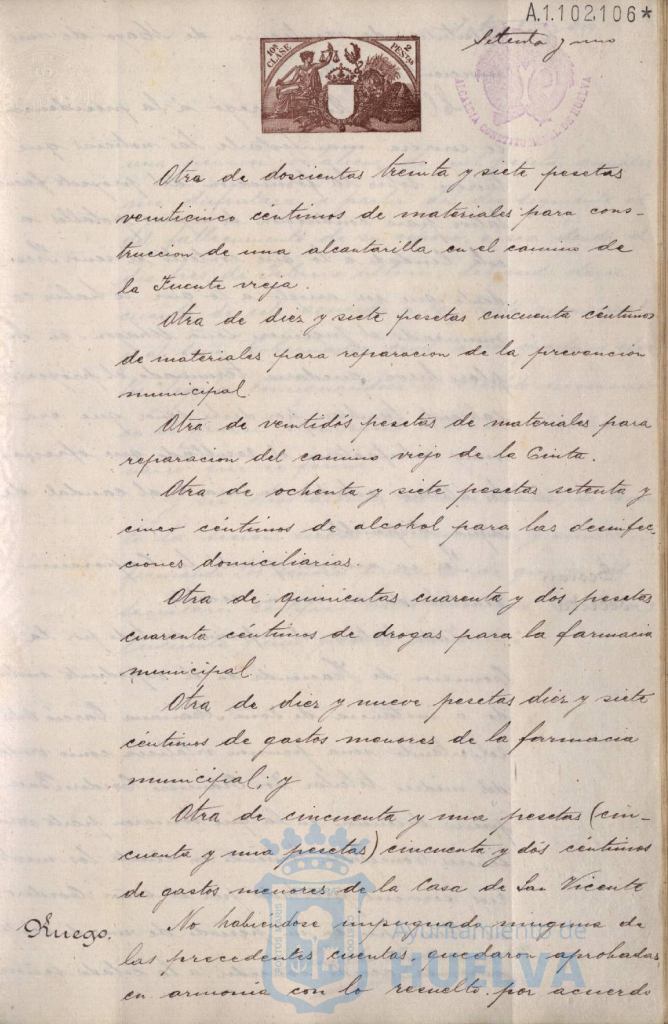 A.1.102.106*
Setenta y uno
10ª CLASE
2 PESTAS
ALCALDIA CONSTITUCIONAL DE HUELVA
Otra de doscientas treinta y siete pesetas
veinticinco céntimos de materiales para cons-
truccion de una alcantarilla en el camino de
la Fuente vieja.
Otra de diez y siete pesetas cincuenta céntimos
de materiales para reparacion de la prevencion
municipal
Otra de veintidós pesetas de materiales para
reparacion del camino viejo de la Cinta.
Otra de ochenta y siete pesetas setenta y
cinco céntimos de alcohol para las desinfec-
ciones domiciliarias.
Otra de quinientas cuarenta y dos pesetas
cuarenta céntimos de drogas para la farmacia
municipal
Otra de diez y nueve pesetas diez y siete
céntimos de gastos menores de la farmacia
municipal; y
Otra de cincuenta y una pesetas (cin-
cuenta y una pesetas) cincuenta y dós céntimos
de gastos menores de la Casa de San Vicente
Ruego. No habiéndose impugnado ninguna de
las precedentes cuentas, quedaron aprobadas
en armonía con lo resuelto por acuerdo
Ayuntamiento de
HUELVA